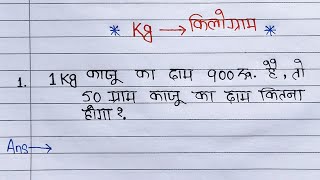 * Kg → किलोग्राम *
1. 1Kg काजू का दाम 900 रू. है, तो
50 ग्राम काजू का दाम कितना
होगा ?
Ans →